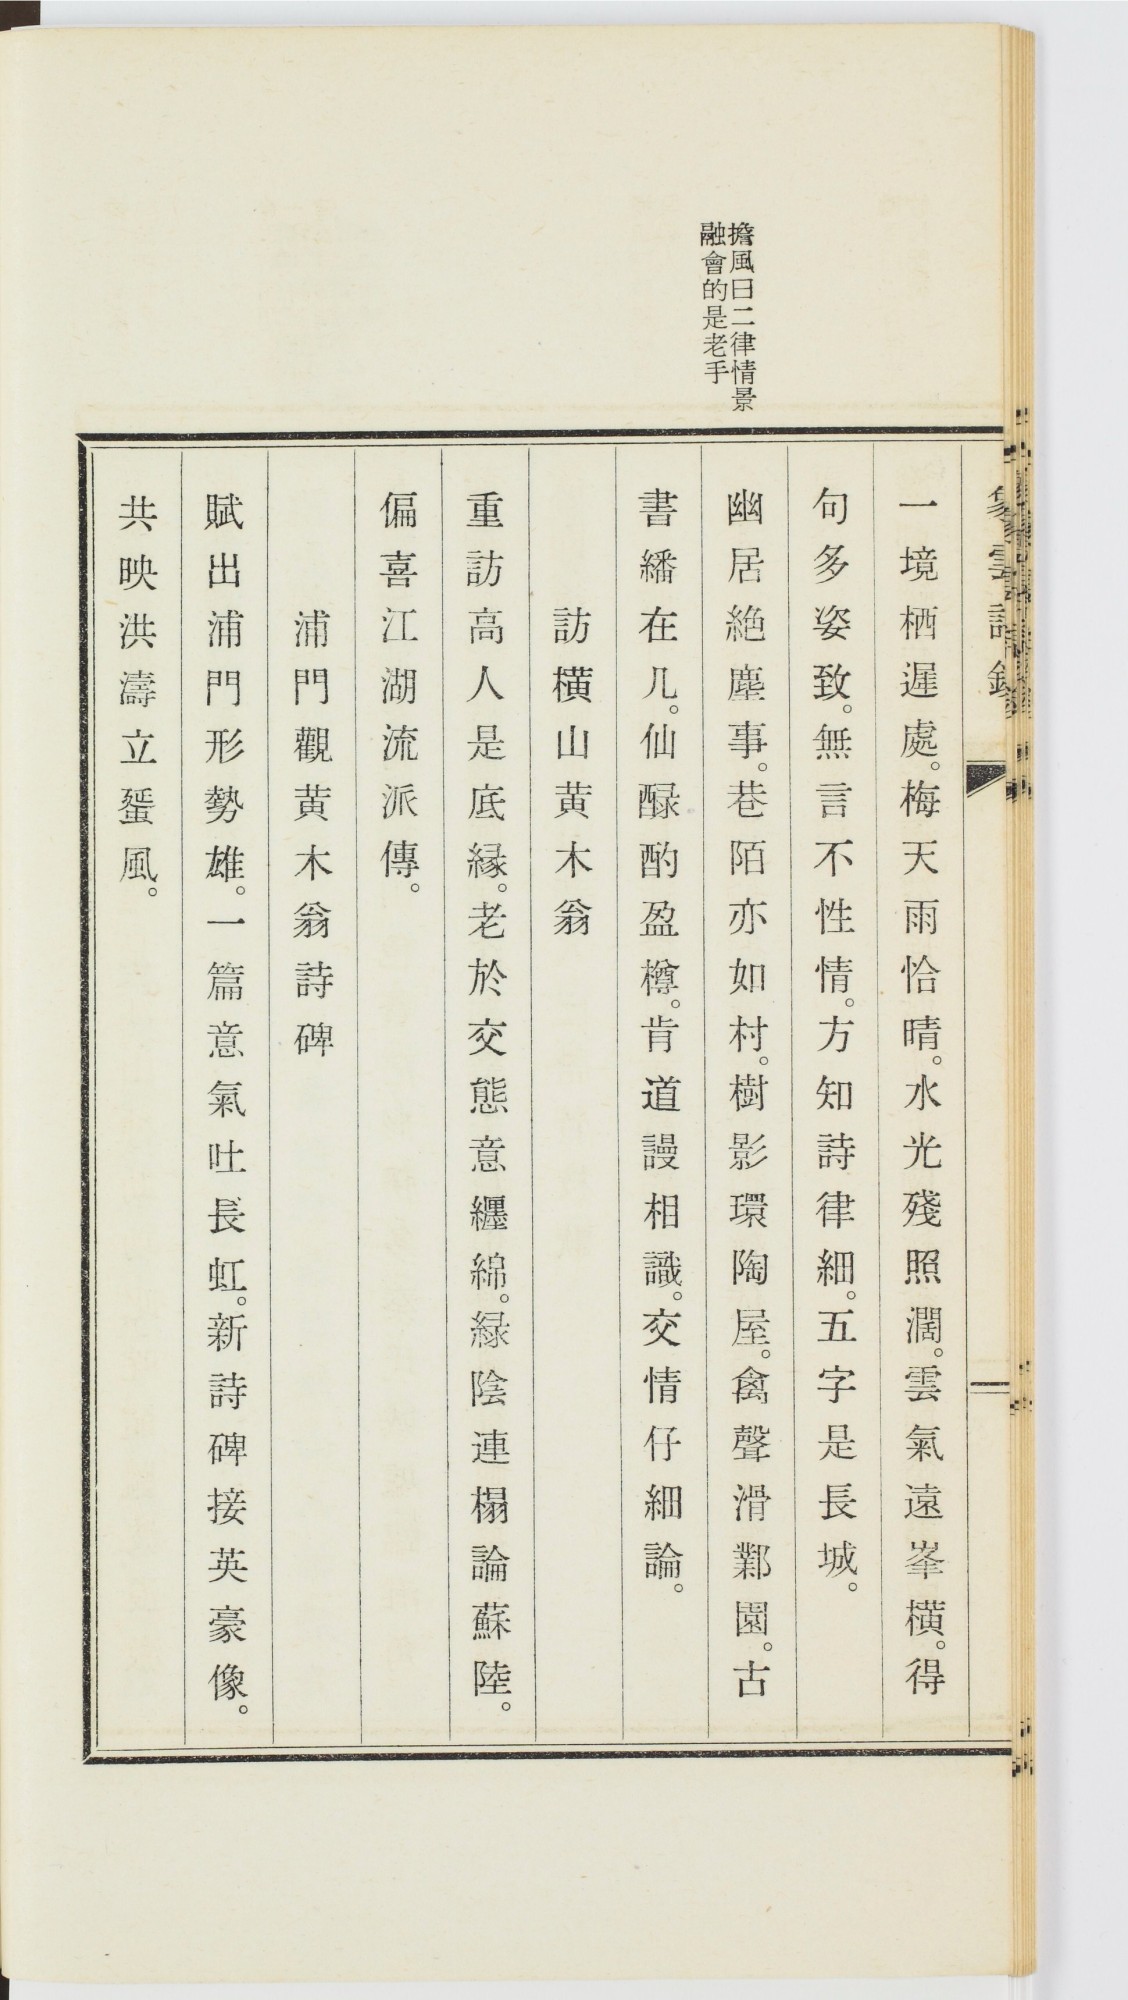 擔風曰二律情景
融會的是老手
篆雲詩鈔
一境栖遲處。梅天雨恰晴。水光殘照濶。雲氣遠峯橫。得
句多姿致。無言不性情。方知詩律細。五字是長城。
幽居絶塵事。巷陌亦如村。樹影環陶屋。禽聲滑鄴園。古
書繙在几。仙醁酌盈樽。肯道謾相識。交情仔細論。
訪橫山黄木翁
重訪高人是底縁。老於交態意纒綿。緑陰連榻論蘇陸。
偏喜江湖流派傳。
浦門觀黄木翁詩碑
賦出浦門形勢雄。一篇意氣吐長虹。新詩碑接英豪像。
共映洪濤立蜑風。